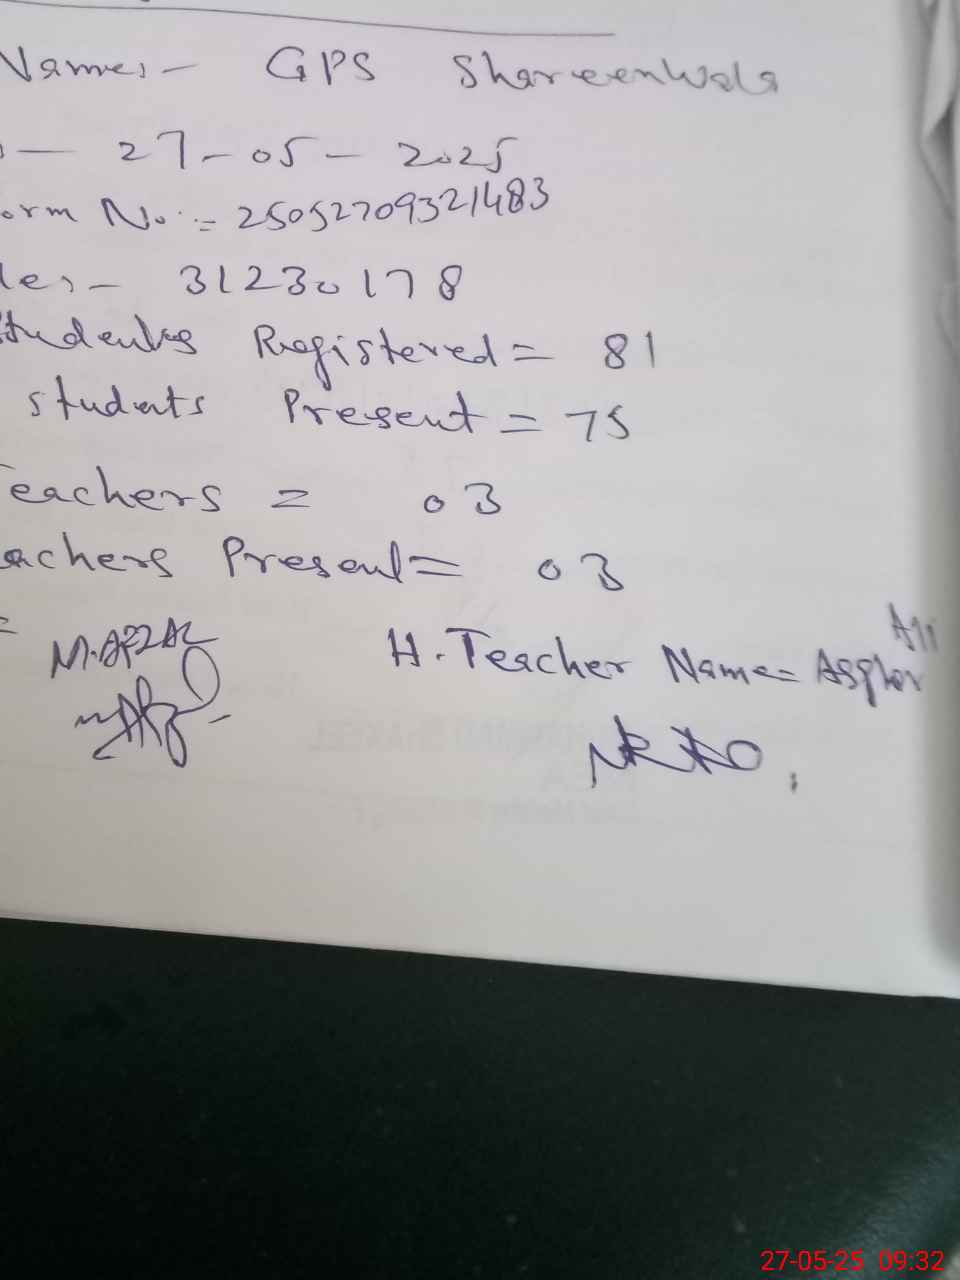 Name:- GPS Shareenwala
:- 27-05-2025
orm No:= 25052709321483
de:- 31230178
Students Registered= 81
Students Present= 75
Teachers = 03
achers Present= 03
= M.AFZAL H.Teacher Name= Asghar Ali
27-05-25 09:32